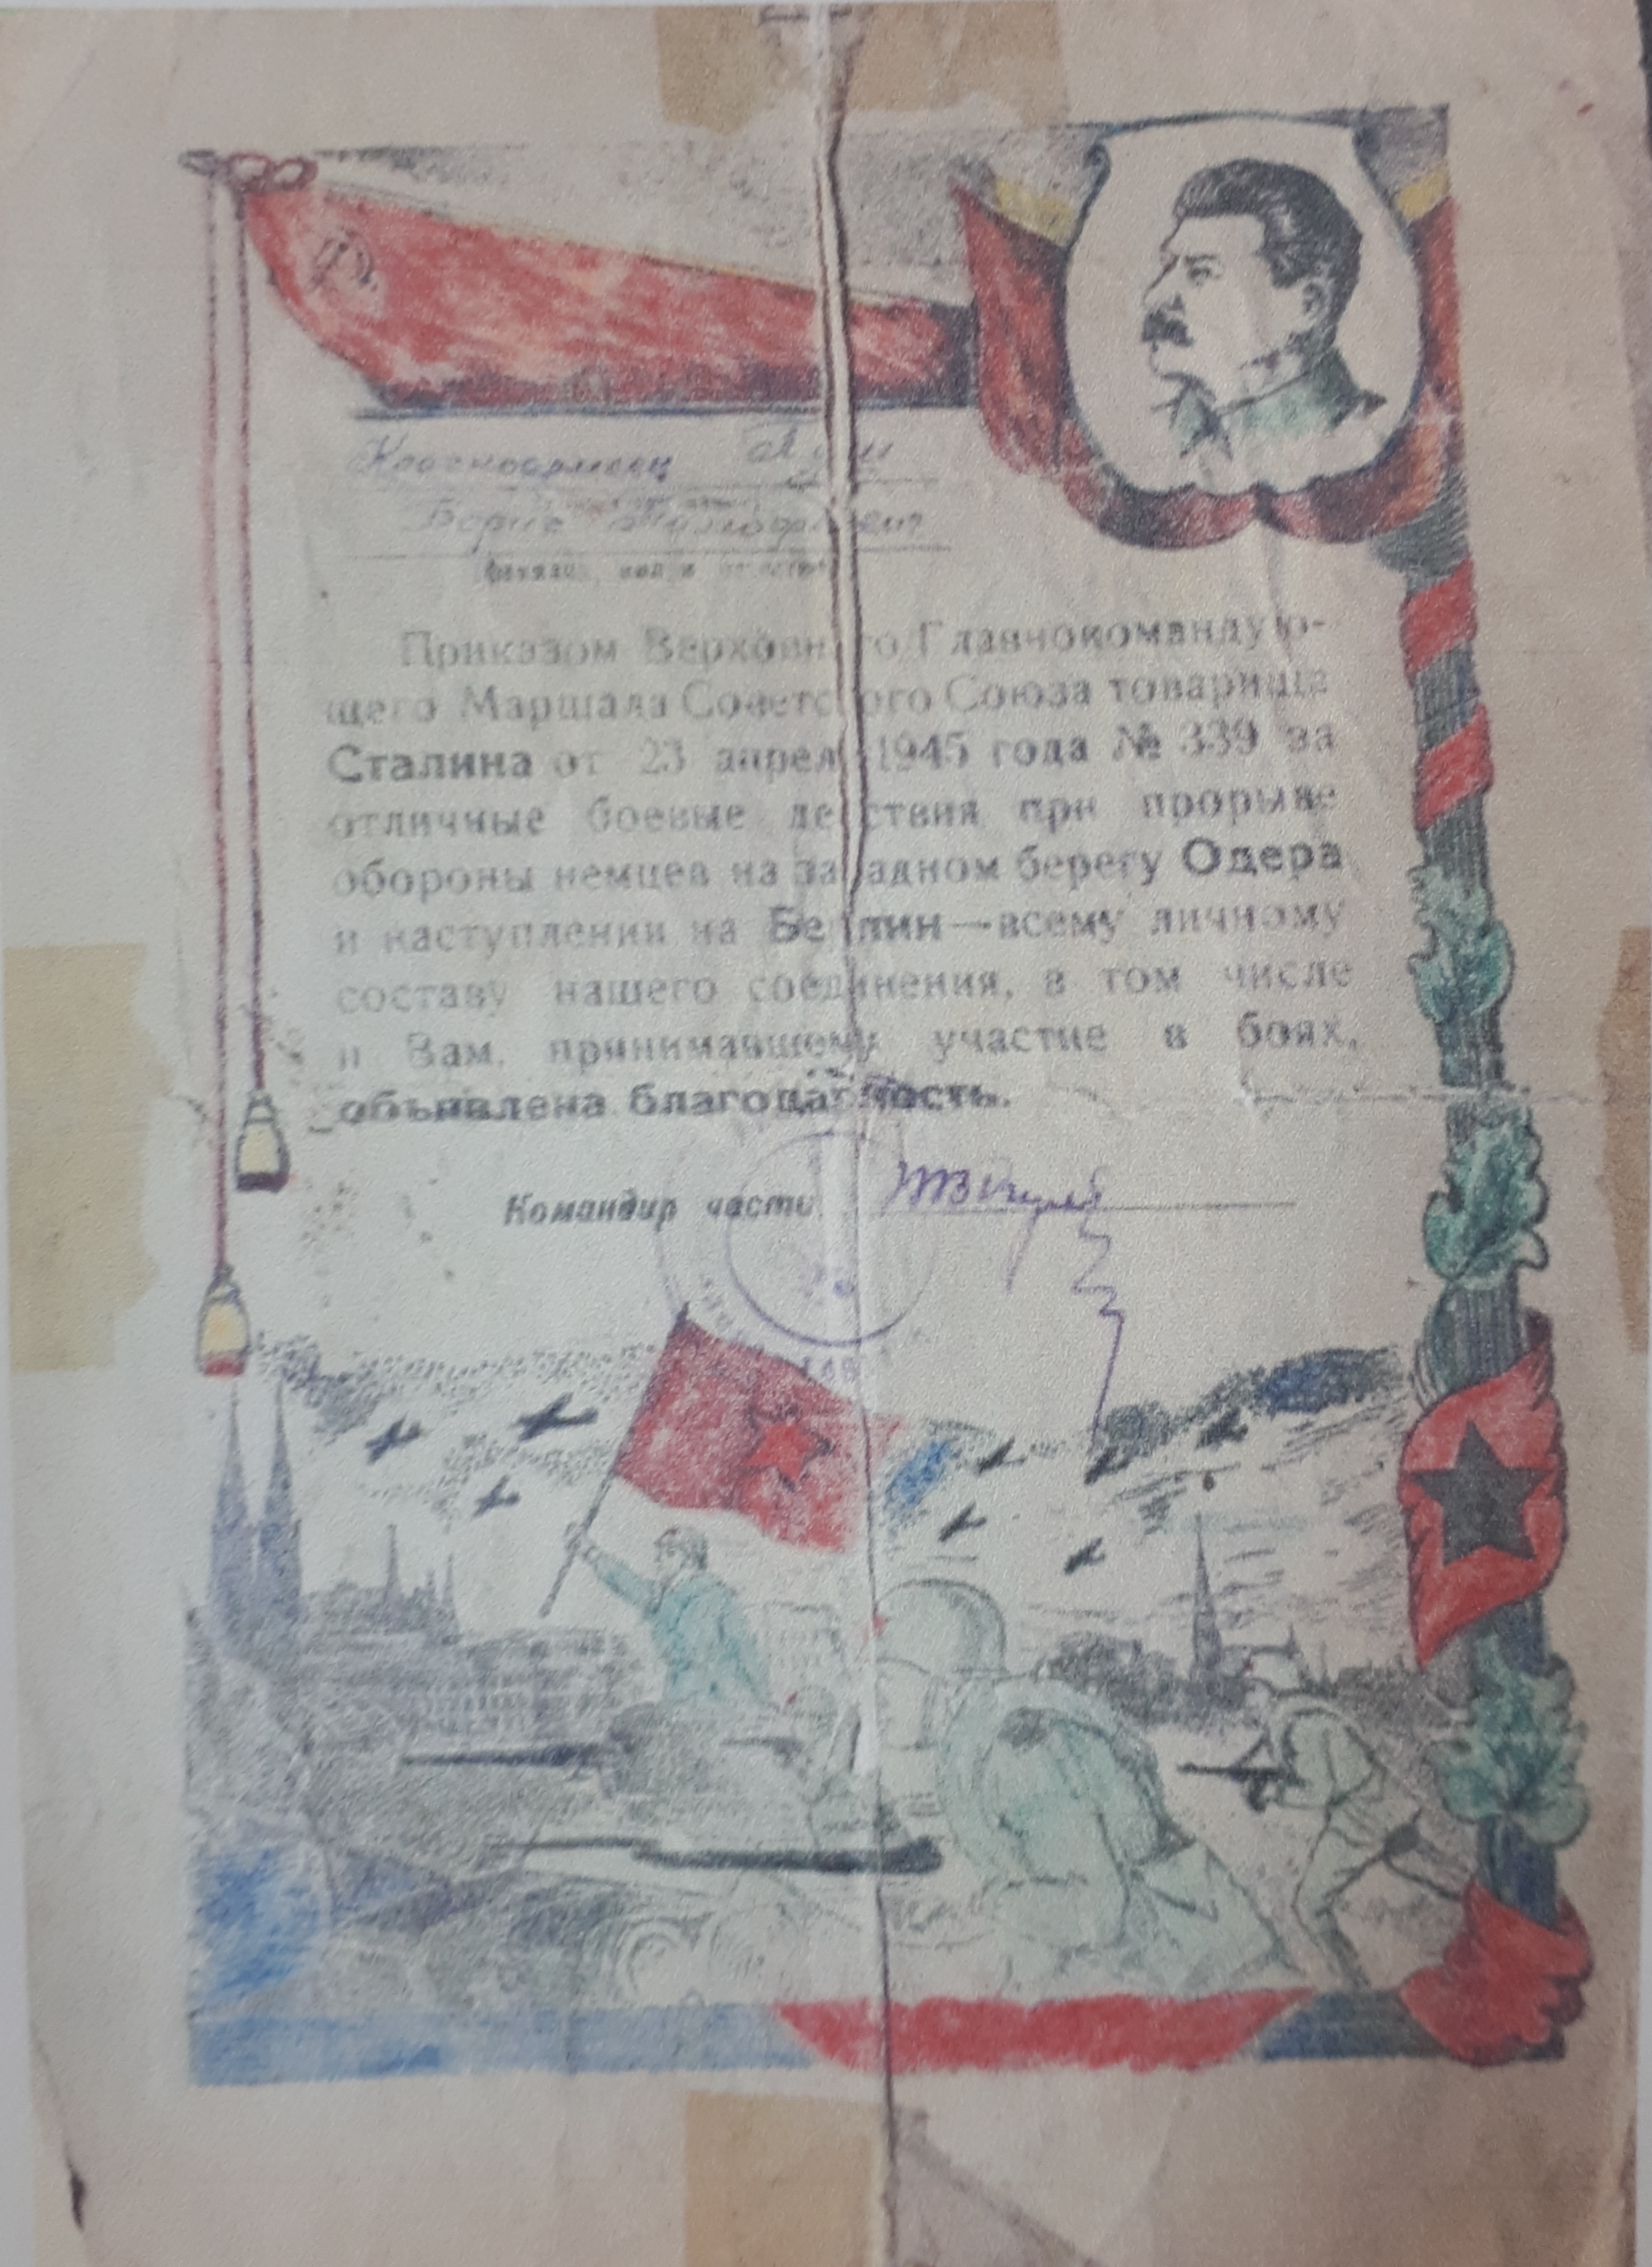 Красноармеец
Борис
фамилия, имя и отчество
Приказом Верховного Главнокомандую-
щего Маршала Советского Союза товарища
Сталина от 23 апреля 1945 года № 339 за
отличные боевые действия при прорыве
обороны немцев на западном берегу Одера
и наступлении на Берлин—всему личному
составу нашего соединения, в том числе
и Вам, принимавшему участие в боях,
объявлена благодарность.
Командир части